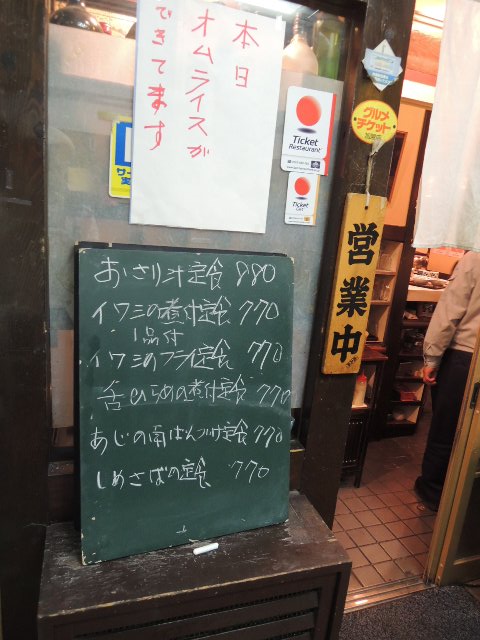 本日
オムライスが
できてます
Ticket
Restaurant
Ticket
グルメ
チケット
営業中
あさり汁定食 880
イワシの煮付定食 770
1品付
イワシのフライ定食 770
舌びらめの煮付定食 770
あじの南ばんづけ定食 770
しめさばの定食 770